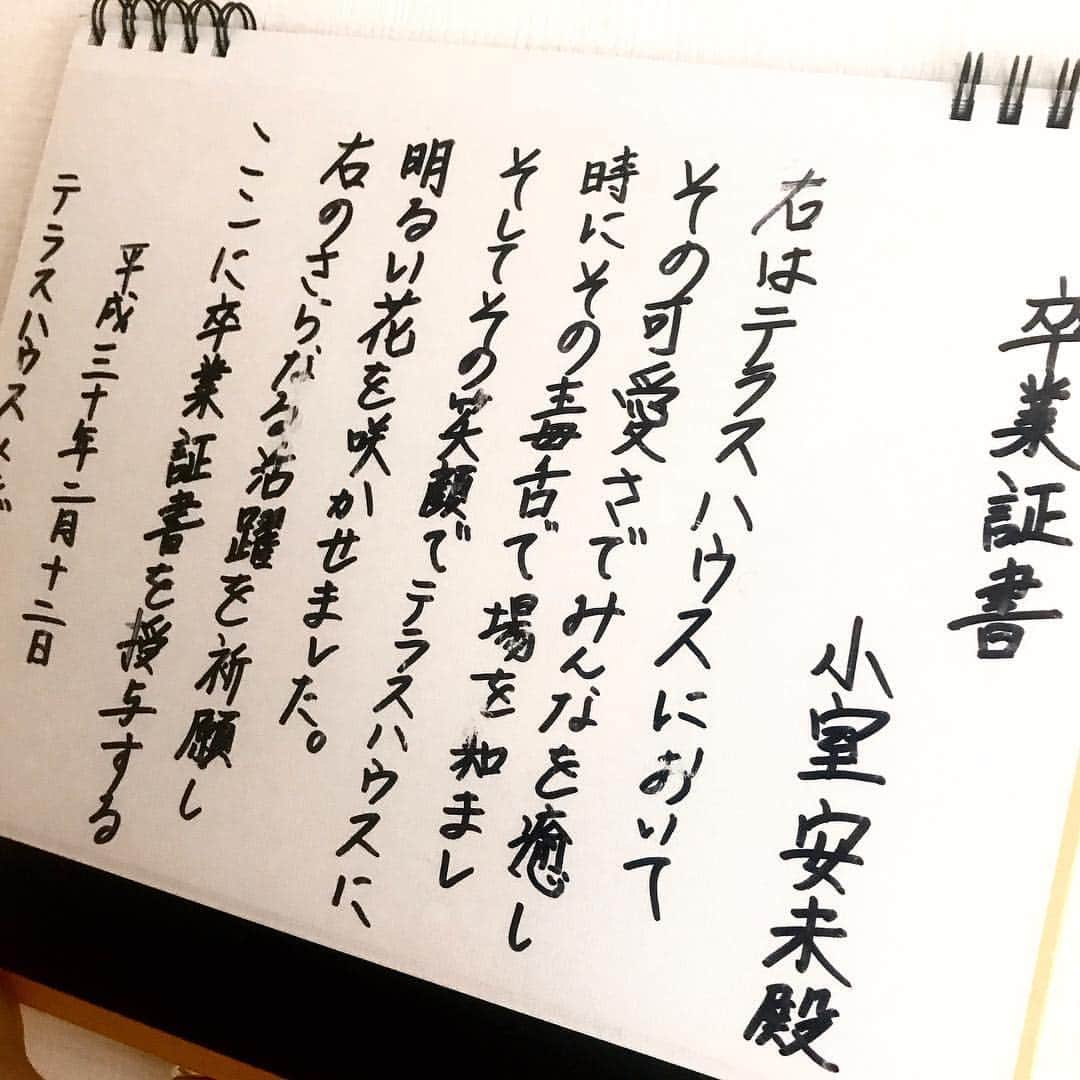 卒業証書
小室安未殿
右はテラスハウスにおいて
その可愛さでみんなを癒し
時にその毒舌で場を和まし
そしてその笑顔でテラスハウスに
明るい花を咲かせました。
右のさらなる活躍を祈願し
ここに卒業証書を授与する
平成三十年二月十二日
テラスハウス